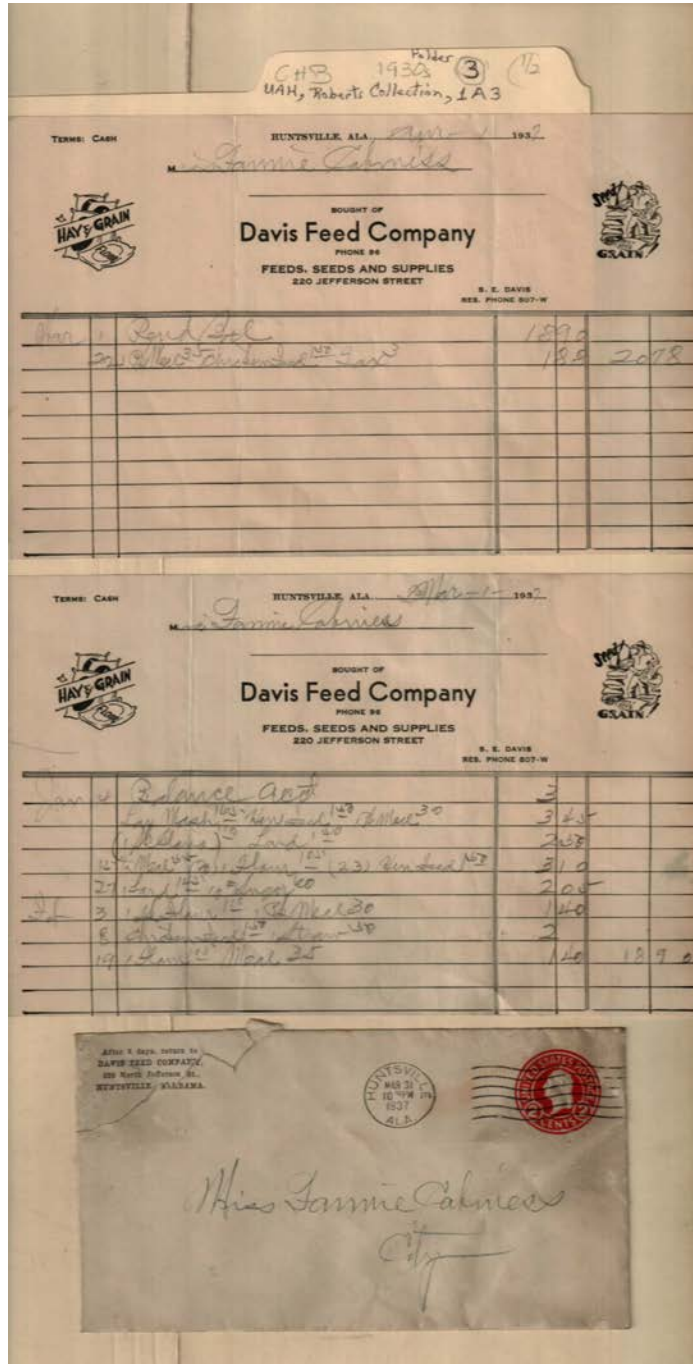 CHB 1930s Folder 3 (1/2
UAH, Roberts Collection, 1A3
TERMS: CASH
HUNTSVILLE, ALA. Apr - 1 1937
Miss Fannie Cabniss
HAY & GRAIN
Seed
GRAIN
BOUGHT OF
Davis Feed Company
PHONE 96
FEEDS, SEEDS AND SUPPLIES
220 JEFFERSON STREET
S. E. DAVIS
RES. PHONE 807-W
Mar 1 18 90
22 Meal 35 Chicken Feed 150 Tax 3 1 88 20 78
TERMS: CASH
HUNTSVILLE, ALA. Mar - 1 - 1937
Miss Fannie Cabniss
HAY & GRAIN
Seed
GRAIN
BOUGHT OF
Davis Feed Company
PHONE 96
FEEDS, SEEDS AND SUPPLIES
220 JEFFERSON STREET
S. E. DAVIS
RES. PHONE 807-W
Jan 4 Balance Act 3
Lay Mash Hen Feed Meal 30 3 45
Lard 2 50
Meal Flour (23) Hen Feed 3 10
27 Lard Sugar 2 05
3 Flour Meal 30 1 40
8 Chicken Feed Straw 50 2
19 Flour Meal 35 1 40 18 90
After 5 days, return to
DAVIS FEED COMPANY,
220 North Jefferson St.,
HUNTSVILLE, ALABAMA.
HUNTSVILLE
MAR 31
10 PM
1937
ALA.
UNITED STATES POSTAGE
2 CENTS 2
Miss Fannie Cabness
City